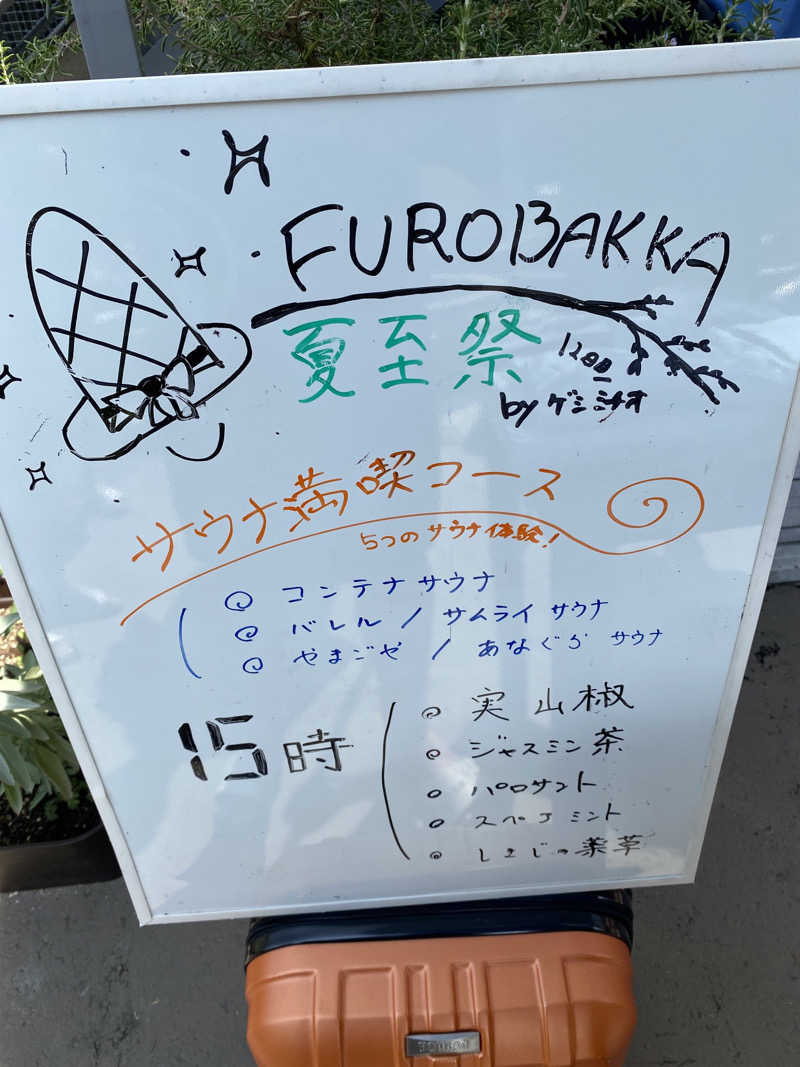 FUROBAKKA
夏至祭
by ゲシミナオ
サウナ満喫コース
5つのサウナ体験!
コンテナサウナ
バレル / サムライサウナ
やまごや / あなぐらサウナ
15時
実山椒
ジャスミン茶
パロサント
スペアミント
薬草